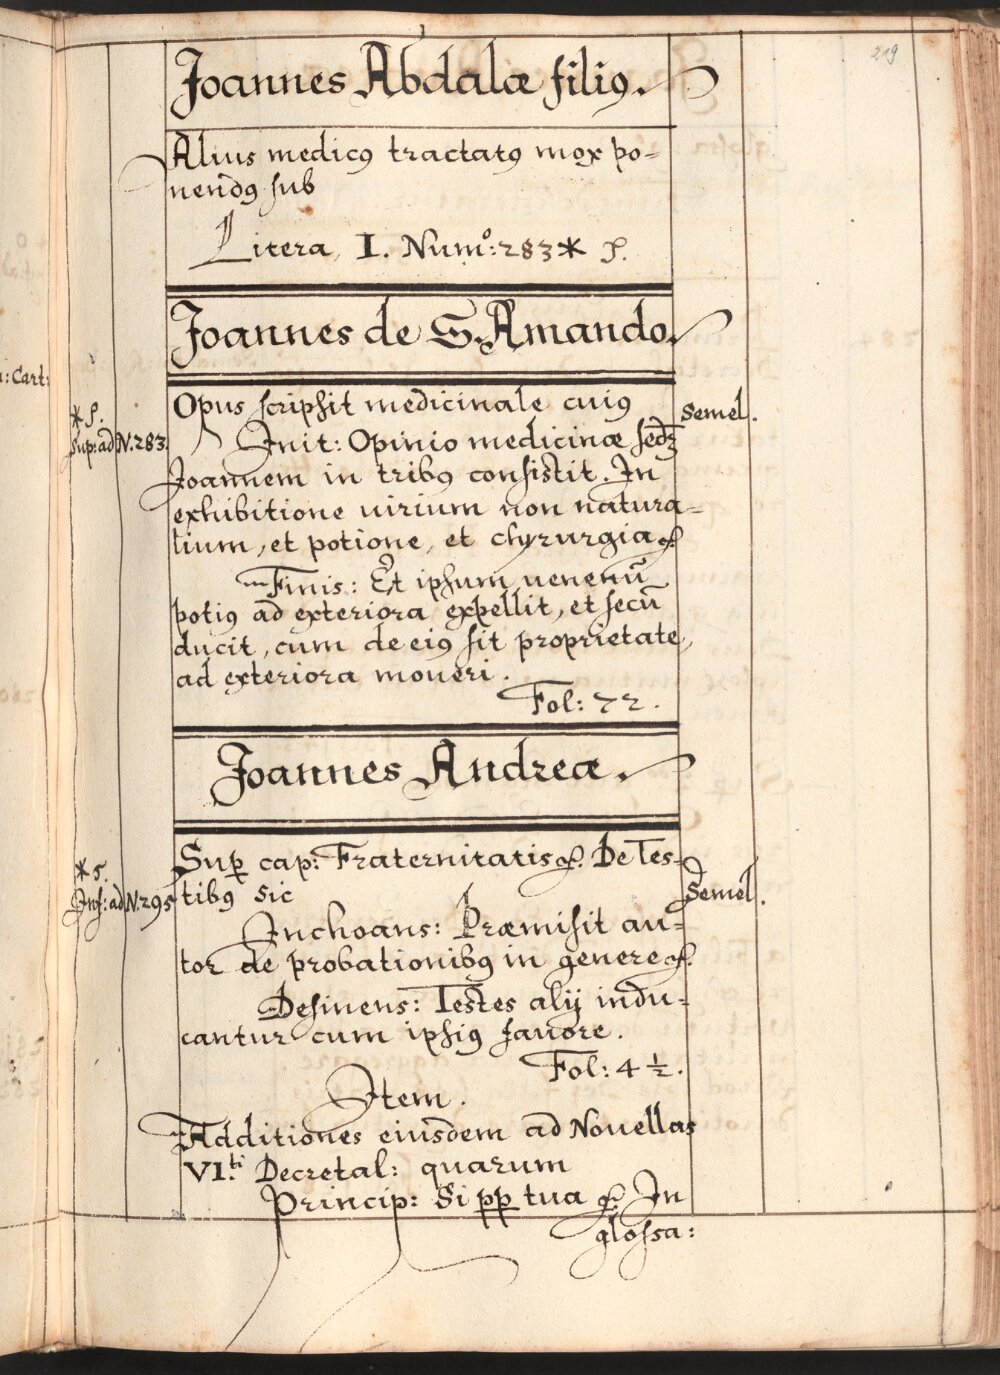 219
Joannes Abdalæ filiꝯ.
Alius medicꝯ tractatꝯ mox po=
nendꝯ sub
Litera, I. Numº: 283 * ꝭ.
Joannes de S. Amando.
n: Cart:
* ꝭ.
Sup: ad N. 283.
Semel.
Opus scripsit medicinale cuiꝯ
Init: Opinio medicinæ sedꝫ
Joannem in tribꝯ consistit. In
exhibitione uirium non natura=
lium, et potione, et chyrurgia ꝭ.
Finis: Et ipsum uenenū
potiꝯ ad exteriora expellit, et secū
ducit, cum de eiꝯ sit proprietate,
ad exteriora moueri.
Fol: 72.
Joannes Andreæ.
* 5.
Inf: ad N. 295
Semel.
Suꝑ cap: Fraternitatis ꝭ. De Tes=
tibꝯ sic
Inchoans: Præmisit au=
tor de probationibꝯ in genere ꝭ.
Desinens: Testes alij indu=
cantur cum ipsiꝯ fauore.
Fol: 4 ½.
Item.
Additiones eiusdem ad Nouellas
VI.ti Decretal: quarum
Princip: Si pp tua ꝭ. In
glossa: